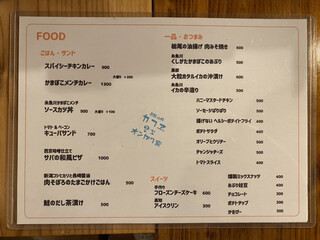 FOOD
ごはん・サンド
スパイシーチキンカレー 900
大盛り +100
かまぼこメンチカレー 1300
糸魚川かまぼこメンチ
ソースカツ丼 500
大盛り +100
トマト&ベーコン
キューバサンド 700
西京味噌仕立て
サバの和風ピザ 1000
新潟コシヒカリと長崎醤油
肉そぼろのたまごかけごはん 500
鮭のだし茶漬け 500
カフェ
の
オンガク家
一品・おつまみ
栃尾の油揚げ 肉みそ焼き 600
糸魚川
くしがたかまぼこのあぶり 500
大粒ホタルイカの沖漬け 500
糸魚川
イカの辛造り 500
ハニーマスタードチキン 500
ソーセージ 500
揚げない ヘルシーポテトフライ 500
ポテトサラダ 500
オリーブとクリチー 500
チャンジャチーズ 500
トマトスライス 400
燻製ミックスナッツ 400
あぶり枝豆 400
チョコレート 300
ポテトチップ 300
かきぴー 300
スイーツ
手作り
フローズンチーズケーキ 600
高知
アイスクリン 300